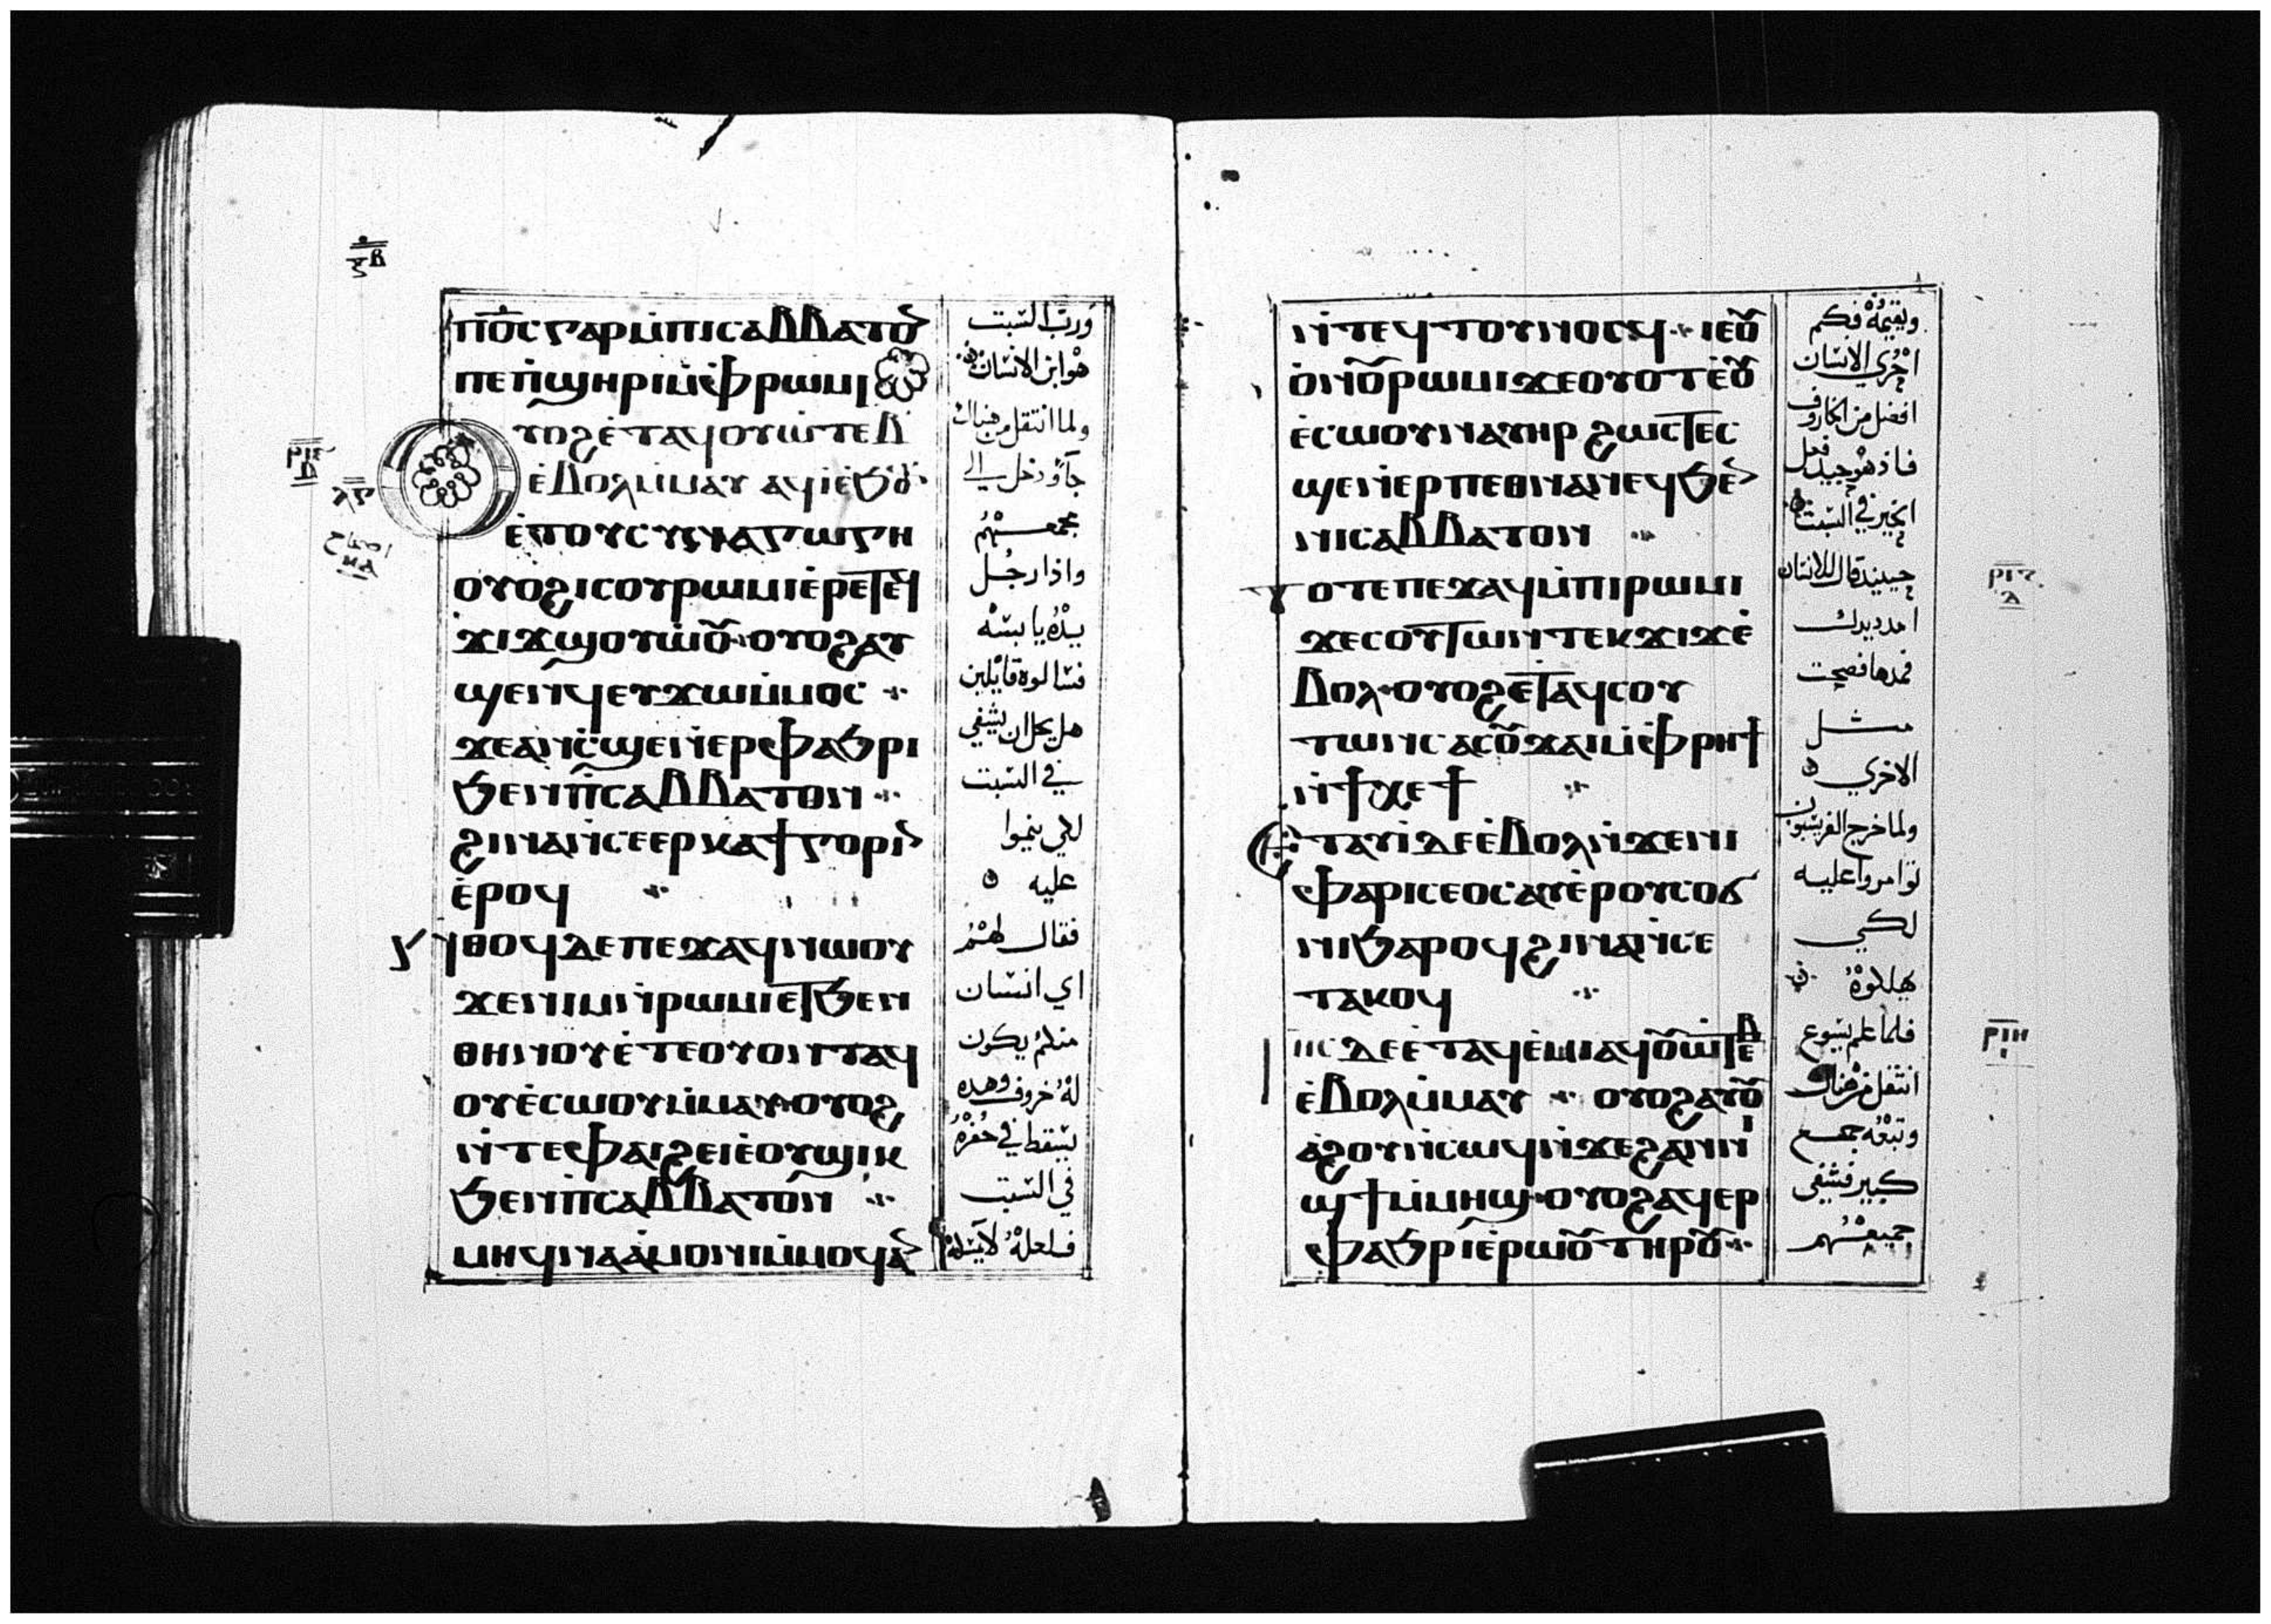 ⲡⲟ̅ⲥ ⲅⲁⲣ ⲙ̀ⲡⲓⲥⲁⲃⲃⲁⲧⲟ
ⲡⲉ ⲡ̀ϣⲏⲣⲓ ⲙ̀ⲫ̀ⲣⲱⲙⲓ
ⲩⲟϩ ⲉ̀ⲧⲁϥⲟⲩⲱ̀ⲧⲉⲃ
ⲉ̀ⲃⲟⲗ ⲙ̀ⲙⲁⲩ ⲁϥⲓ̀ ⲉ̀ϧⲟ̅
ⲉ̀ⲧⲟⲩⲥⲩⲛⲁⲅⲱⲅⲏ
ⲟⲩⲟϩ ⲓⲥ ⲟⲩⲣⲱⲙⲓ ⲉ̀ⲣⲉ ⲧⲉϥ
ϫⲓϫ ϣⲟⲩⲱ̀ⲟⲩ ⲟⲩⲟϩ ⲁⲩ
ϣⲉⲛϥ ⲉⲩϫⲱ ⲙ̀ⲙⲟⲥ
ϫⲉ ⲁⲛ ⲥ̀ϣⲉ ⲛ̀ⲉⲣⲫⲁϧⲣⲓ
ϧⲉⲛ ⲡ̀ⲥⲁⲃⲃⲁⲧⲟⲛ
ϩⲓⲛⲁ ⲛ̀ⲥⲉⲉⲣⲕⲁϯⲅⲟⲣⲓⲛ
ⲉ̀ⲣⲟϥ
ⲛ̀ⲑⲟϥ ⲇⲉ ⲡⲉϫⲁϥ ⲛⲱⲟⲩ
ϫⲉ ⲛⲓⲙ ⲛ̀ⲣⲱⲙⲓ ⲉⲧϧⲉⲛ
ⲑⲏⲛⲟⲩ ⲉ̀ⲧⲉ ⲟⲩⲟⲛⲧⲁϥ
ⲟⲩⲉ̀ⲥⲱⲟⲩ ⲙ̀ⲙⲁⲩ ⲟⲩⲟϩ
ⲛ̀ⲧⲉ ⲫⲁⲓ ϩⲉⲓ ⲉ̀ⲟⲩϣⲓⲕ
ϧⲉⲛ ⲡ̀ⲥⲁⲃⲃⲁⲧⲟⲛ
ⲙⲏ ϥⲛⲁⲁ̀ⲙⲟⲛⲓ ⲙ̀ⲙⲟϥ ⲁⲛ
ورب السبت
هو ابن الانسان
ولما انتقل من هناك
جآ ودخل الي
مجمعهم
واذا رجل
يده يابسه
فسالوه قايلين
هل يحل ان يشفي
في السبت
لكي ينموا
عليه
فقال لهم
اي انسان
منكم يكون
له خروف وهده
يسقط في حفره
في السبت
فلعله لا يمسكه
اصحاح
ⲛ̀ⲧⲉϥⲧⲟⲩⲛⲟⲥϥ ⲓⲉ ⲟⲩ
ⲟ̀ⲛ ⲟⲩⲣⲱⲙⲓ ϫⲉ ⲟⲩⲟⲧ ⲉ̀ⲟⲩ
ⲉ̀ⲥⲱⲟⲩ ⲛⲁⲩⲏⲣ ϩⲱⲥⲧⲉ ⲥ
ϣⲉ ⲛ̀ⲉⲣⲡⲉⲑⲛⲁⲛⲉϥ ϧⲉⲛ
ⲛⲓⲥⲁⲃⲃⲁⲧⲟⲛ
ⲧⲟⲧⲉ ⲡⲉϫⲁϥ ⲙ̀ⲡⲓⲣⲱⲙⲓ
ϫⲉ ⲥⲟⲩⲧⲱⲛ ⲧⲉⲕϫⲓϫ ⲉ̀
ⲃⲟⲗ ⲟⲩⲟϩ ⲉⲧⲁϥⲥⲟⲩ
ⲧⲱⲛⲥ ⲁⲥⲟⲩϫⲁⲓ ⲙ̀ⲫ̀ⲣⲏϯ
ⲛ̀ϯⲭⲉϯ
ⲉⲧⲁⲩⲓ̀ ⲇⲉ ⲉ̀ⲃⲟⲗ ⲛ̀ϫⲉ ⲛⲓ
ⲫⲁⲣⲓⲥⲉⲟⲥ ⲁⲩⲉ̀ⲣ ⲟⲩⲥⲟϭ
ⲛⲓ ϧⲁⲣⲟϥ ϩⲓⲛⲁ ⲛ̀ⲥⲉ
ⲧⲁⲕⲟϥ
ⲓⲏⲥ ⲇⲉ ⲉⲧⲁϥⲉ̀ⲙⲓ ⲁϥⲟⲩⲱ̀ⲧⲉⲃ
ⲉ̀ⲃⲟⲗ ⲙ̀ⲙⲁⲩ ⲟⲩⲟϩ ⲁⲩⲟⲩ
ⲁϩⲟⲩ ⲛ̀ⲥⲱϥ ⲛ̀ϫⲉ ϩⲁⲛⲛⲓ
ϣϯ ⲙ̀ⲙⲏϣ ⲟⲩⲟϩ ⲁϥⲉⲣ
ⲫⲁϧⲣⲓ ⲉ̀ⲣⲱⲟⲩ ⲧⲏⲣⲟⲩ
ويقيمه فبكم
احري الانسان
افضل من الخاروف
فاذ هو جيد فعل
الخير في السبت
حينيذ قال للانسان
امدد يدك
فمدها فصحت
مثل
الاخري
ولما خرج الفريسيون
توامروا عليه
لكي
يهلكوه
فلما علم يسوع
انتقل من هناك
وتبعه جمع
كبير فشفي
جميعهم
ⲣⲓⲍ
ⲇ
ⲣⲓⲏ